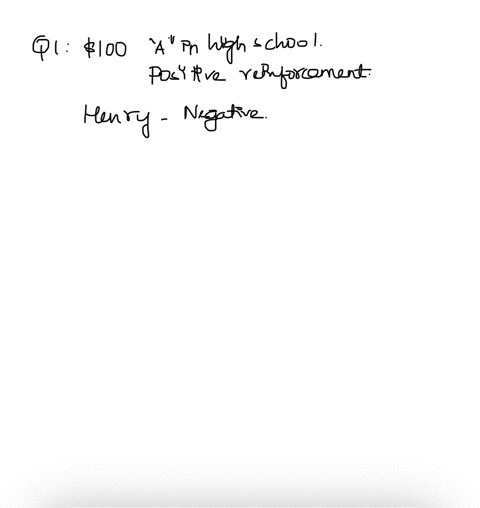 Q1: $100 "A" in high school.
Positive reinforcement.
Henry - Negative.